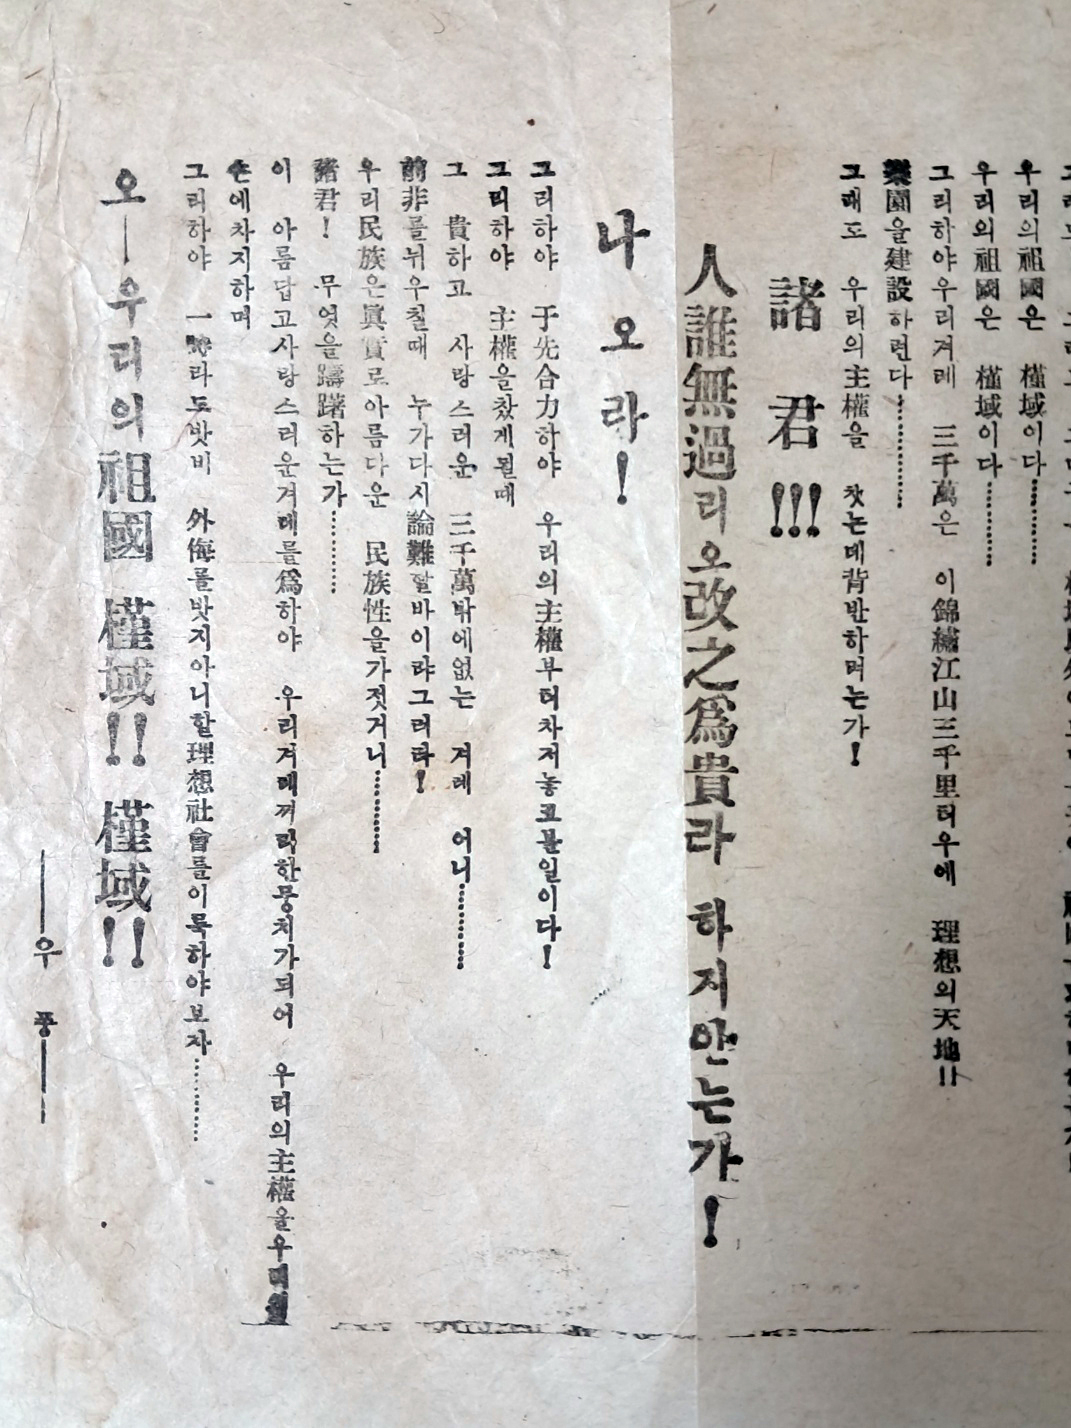 우리의祖國은 槿域이다
우리의祖國은 槿域이다
그리하야우리겨레 三千萬은 이錦繡江山三千里터우에 理想의天地!!
樂園을建設하련다
그래도 우리의主權을 찻는데背반하려는가!
諸君!!!
人誰無過리오改之爲貴라 하지안는가!
나오라!
그리하야 于先合力하야 우리의主權부터차저놓고볼일이다!
그리하야 主權을찼게될때
그 貴하고 사랑스러운 三千萬밖에없는 겨레 어니
前非를뉘우칠때 누가다시論難할바이랴그러라!
우리民族은眞實로아름다운 民族性을가젓거니
諸君! 무엇을躊躇하는가
이 아름답고사랑스러운겨레를爲하야 우리겨레끼리한뭉치가되어 우리의主權을우리
손에차지하며
그리하야 一時라도밧비 外侮를밧지아니할理想社會를이룩하야보자
오―우리의祖國 槿域!! 槿域!!
―우 풍―